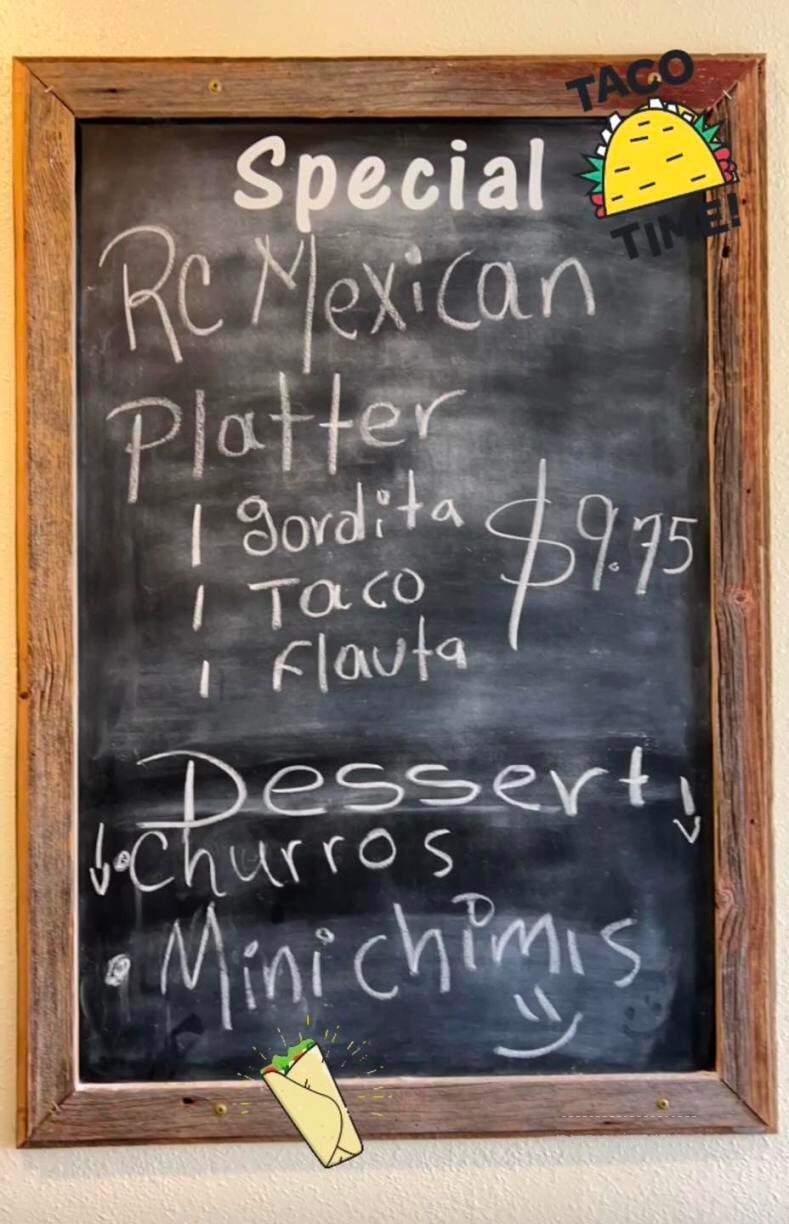 TACO
TIME!
Special
Rc Mexican
Platter
1 gordita
1 Taco
1 Flauta
$9.75
Dessert
Churros
Mini chimis